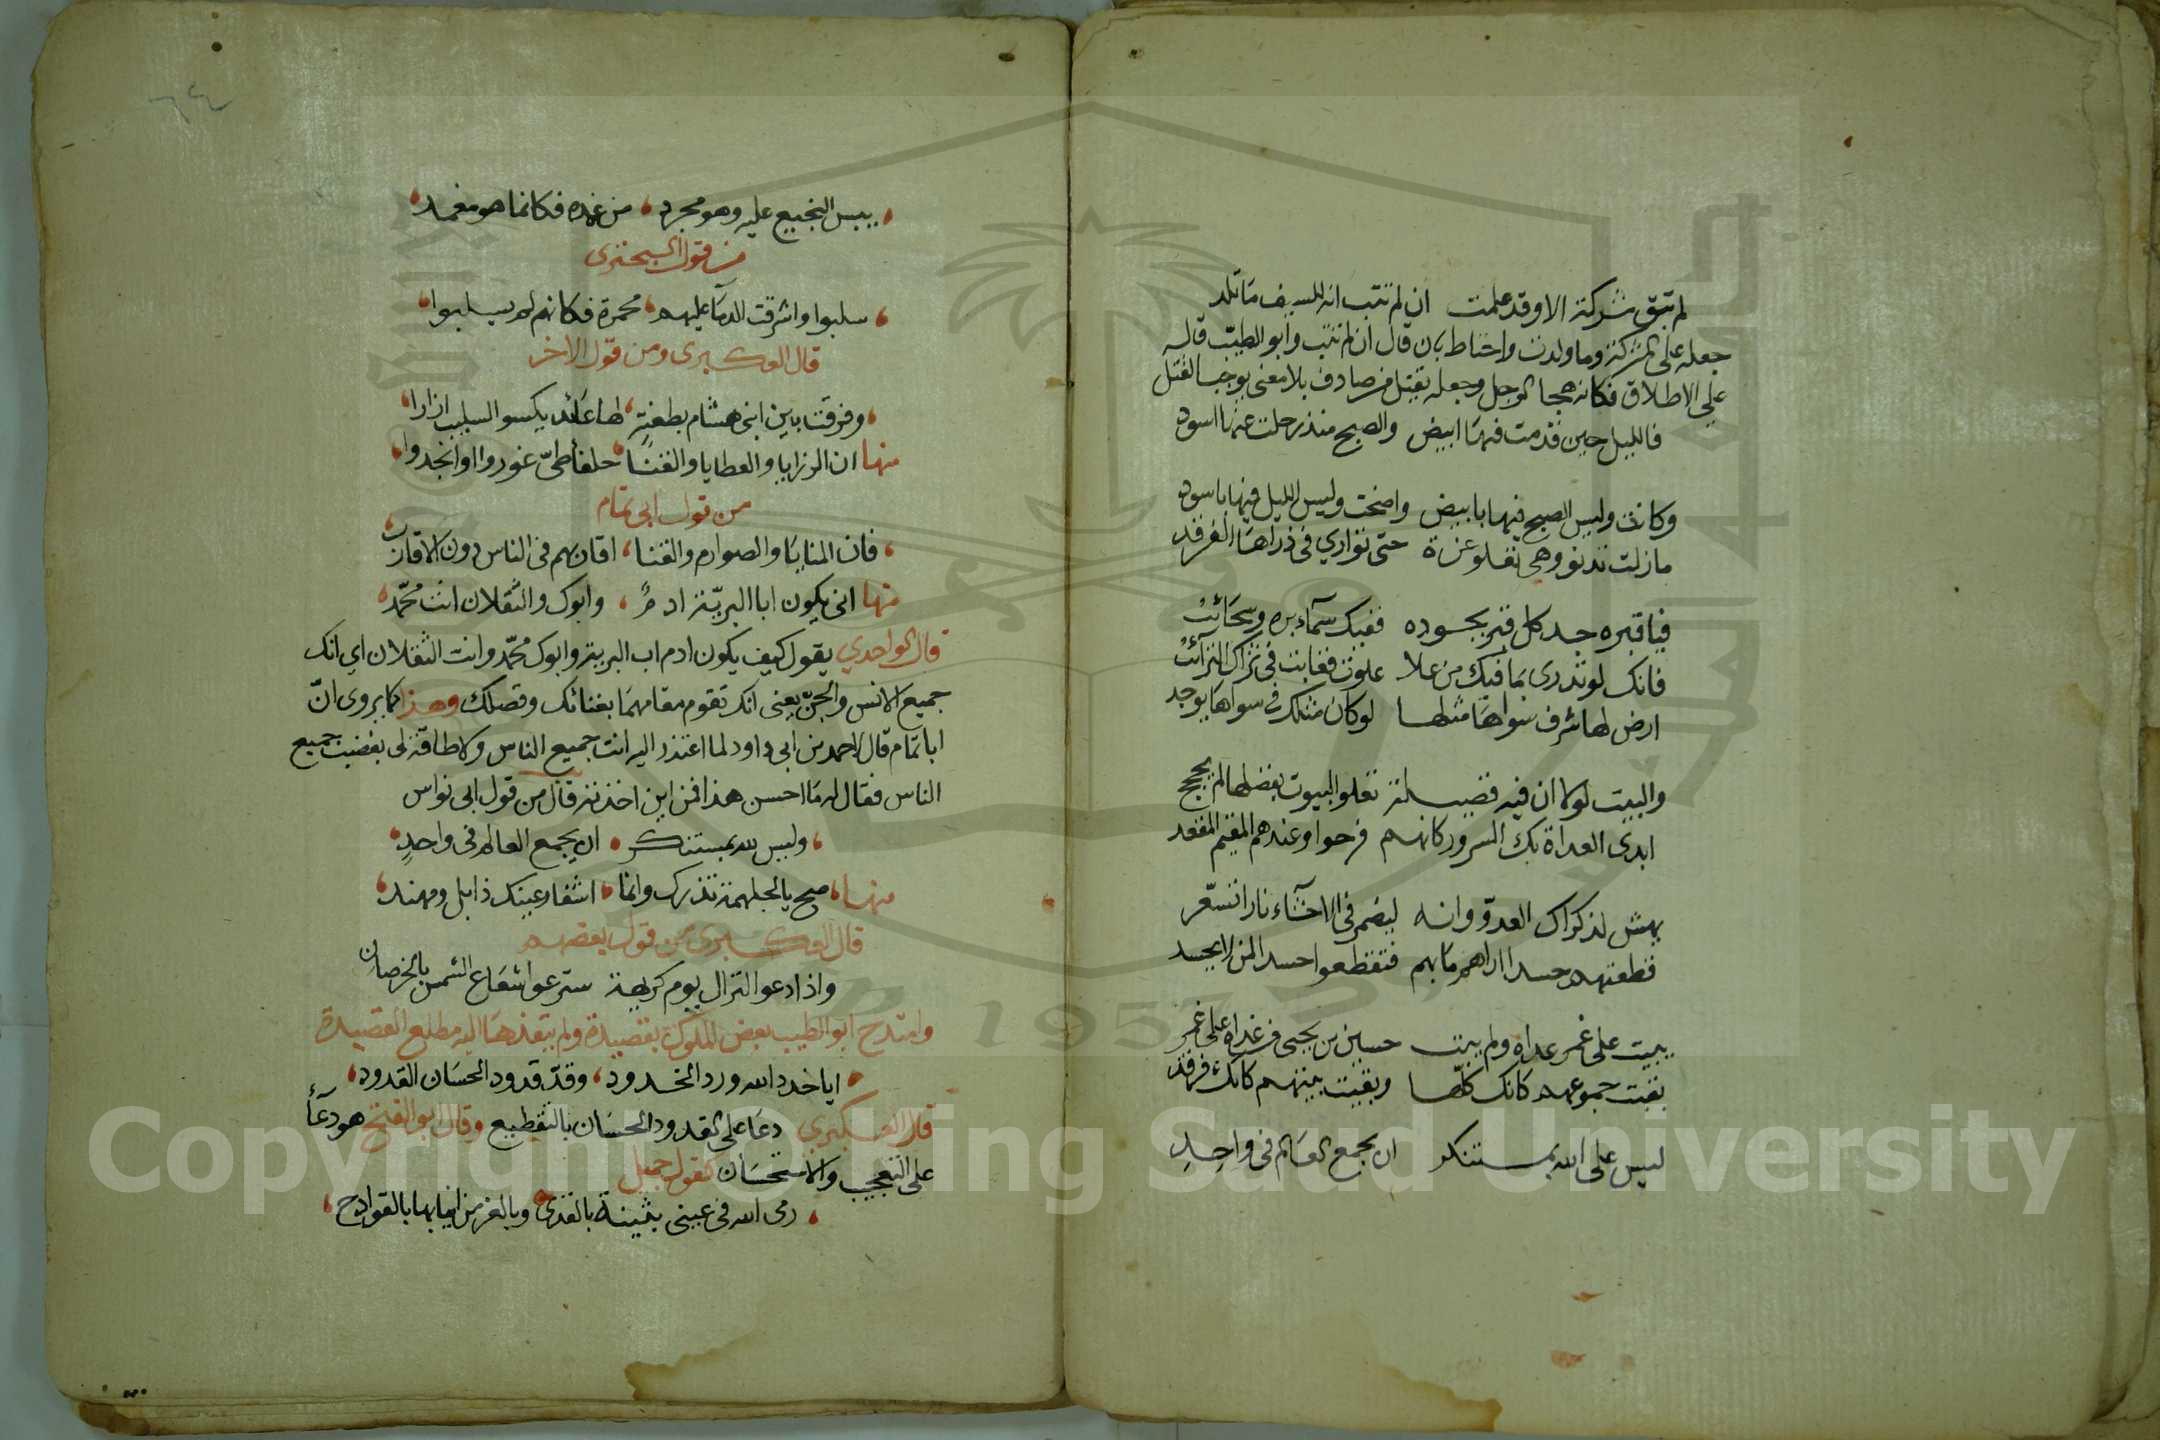 لم تبق شركة الا وقد علمت ان لم تتب انه للسيف ما تلد
جعله على الشركة وما ولدت واحتاط بان قال ان لم تتب وابو الطيب قاله
على الاطلاق فكانه هجا الرجل وجعله يقتل من صادف بلا معنى يوجب القتل
فالليل حين قدمت فيها ابيض والصبح منذ رحلت عنها اسود
وكانت وليس الصبح فيها بابيض واضحت وليس الليل فيها باسود
ما زلت تدنو وهي تعلو عزة حتى توارى في ذراها الفرقد
فيا قبره جد كل قبر بجوده ففيك سماء بره وسحائب
فانك لو تدرى بما فيك من علا علوت فغابت في ثراك الترائب
ارض لها شرف سواها مثلها لو كان مثلك في سواها يوجد
والبيت لولا ان فيه فضيلة تعلو البيوت بفضلها لم يحجج
ابدى العداة بك السرور كانهم فرحوا وعندهم المقيم المقعد
يهش لذكراك العدو وانه ليضمر في الاحشاء نارا تسعر
قطعتهم حسدا اراهم ما بهم فتقطعوا حسدا لمن لا يحسد
يبيت على غمر عداه ولم يبت حسين بن يحيى من عداه على غمر
بقيت جموعهم كانك كلها وبقيت بينهم كانك فرقد
ليس على الله بمستنكر ان يجمع العالم في واحد
يبس النجيع عليه وهو مجرد من غمده فكانما هو مغمد
من قول البحترى
سلبوا واشرقت الدما عليهم محمرة فكانهم لم يسلبوا
قال العكبرى ومن قول الاخر
وفرقت بين ابنى هشام بطعنة لها عاند يكسو السليب ازارا
منها ان الرزايا والعطايا والقنا حلفا طي غوروا او انجدوا
من قول ابى تمام
فان المنايا والصوارم والقنا اقاربهم في الناس دون الاقارب
منها انى يكون ابا البرية ادم وابوك والثقلان انت محمد
قال الواحدي يقول كيف يكون ادم اب البرية وابوك محمد وانت الثقلان اى انك
جميع الانس والجن يعنى انك تقوم مقامهما بغنائك وفضلك وهذا كما يروى ان
ابا تمام قال لاحمد بن ابى داود لما اعتذر اليه انت جميع الناس ولا طاقة لى بغضب جميع
الناس فقال له ما احسن هذا فمن اين اخذته قال من قول ابى نواس
وليس لله بمستنكر ان يجمع العالم في واحد
منها صح يا لجلهمة تذرك وانما اشفار عينك ذابل ومهند
قال العكبرى من قول بعضهم
واذا دعو النزال يوم كريهة ستروا شعاع الشمس بالخرصان
وامتدح ابو الطيب بعض الملوك بقصيدة ولم ينفذها اليه مطلع القصيدة
ايا خدد الله ورد الخدود وقد قدود الحسان القدود
قال العكبرى دعا على القدود الحسان بالتقطيع وقال ابو الفتح هو دعاء
على التعجب والاستحسان كقول جميل
رمى الله في عيني بثينة بالقذى وبالغر من انيابها بالقوادح
Copyright © King Saud University
1957